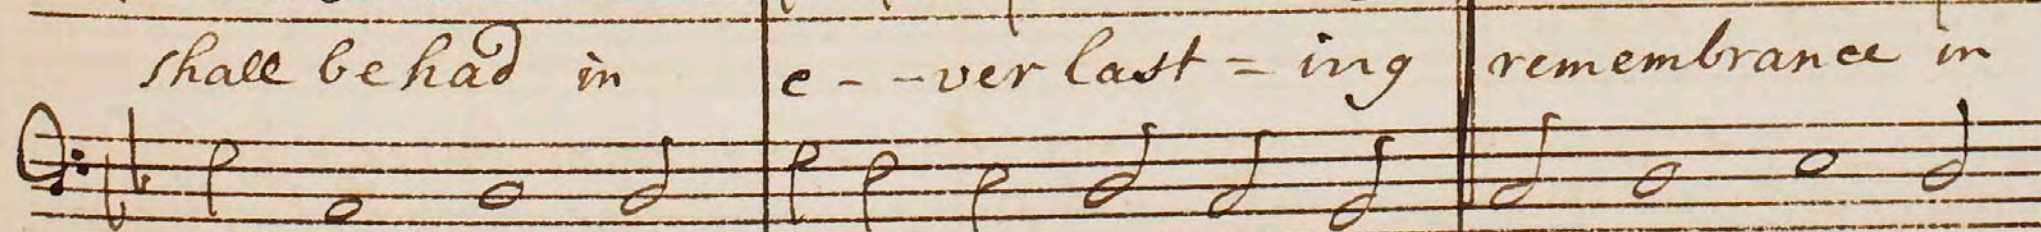 shall be had in e - - ver last = ing remembrance in